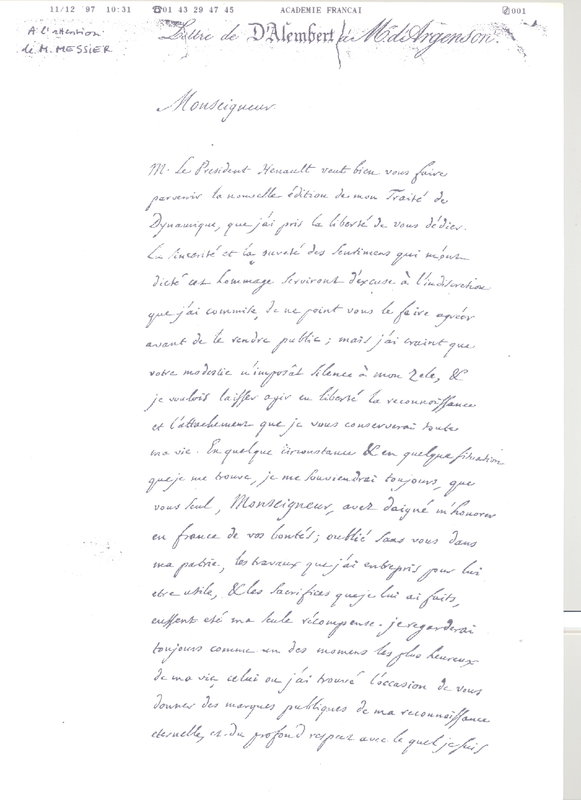 11/12 '97 10:31 ☎01 43 29 47 45 ACADEMIE FRANCAI ✆001
A l'attention
de M. MESSIER
Lettre de D'Alembert à M. d'Argenson.
Monseigneur
M. Le President Henault veut bien vous faire
parvenir la nouvelle édition de mon Traité de
Dynamique, que j'ai pris la liberté de vous dédier.
La sincerité et la pureté des sentimens qui m'ont
dicté cet hommage serviront d'excuse à l'indiscretion
que j'ai commise, de ne point vous le faire agréer
avant de le rendre public; mais j'ai craint que
votre modestie n'imposât silence à mon zele, &
je voulois laisser agir en liberté la reconnoissance
et l'attachement que je vous conserverai toute
ma vie. En quelque circonstance & en quelque situation
que je me trouve, je me souviendrai toujours, que
vous seul, Monseigneur, avez daigné m'honorer
en france de vos bontés; oublié sans vous dans
ma patrie, les travaux que j'ai entrepris pour lui
etre utile, & les sacrifices que je lui ai faits,
eussent eté ma seule récompense. je regarderai
toujours comme un des momens les plus heureux
de ma vie, celui ou j'ai trouvé l'occasion de vous
donner des marques publiques de ma reconnoissance
eternelle, et du profond respect avec le quel je suis